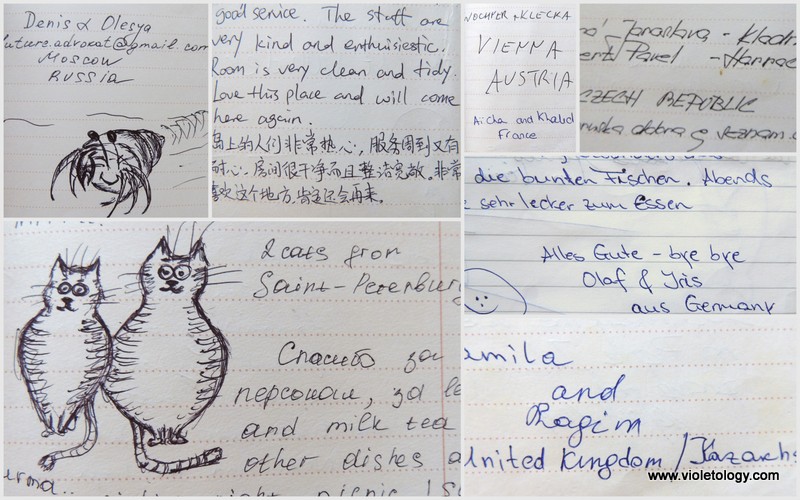 Denis & Olesya
future.advokat@gmail.com
Moscow
RUSSIA
good service. The staff are
very kind and enthusiestic.
Room is very clean and tidy.
Love this place and will come
here again.
岛上的人们非常热心，服务周到又有
耐心。房间很干净而且整洁宽敞。非常
喜欢这个地方，肯定还会再来。
VIENNA
AUSTRIA
Aicha and Khaled
France
Jaroslava - Kladr
Pavel
CZECH REPUBLIC
dobra
die bunten Fischen. Abends
sehr lecker zum Essen
Alles Gute - bye bye
Olaf & Iris
aus Germany
2 cats from
Saint-Petersburg
Спасибо за
персонал, за
and milk tea
other dishes
picnic
amila
and
Ragim
United Kingdom / Kazakhs
www.violetology.com